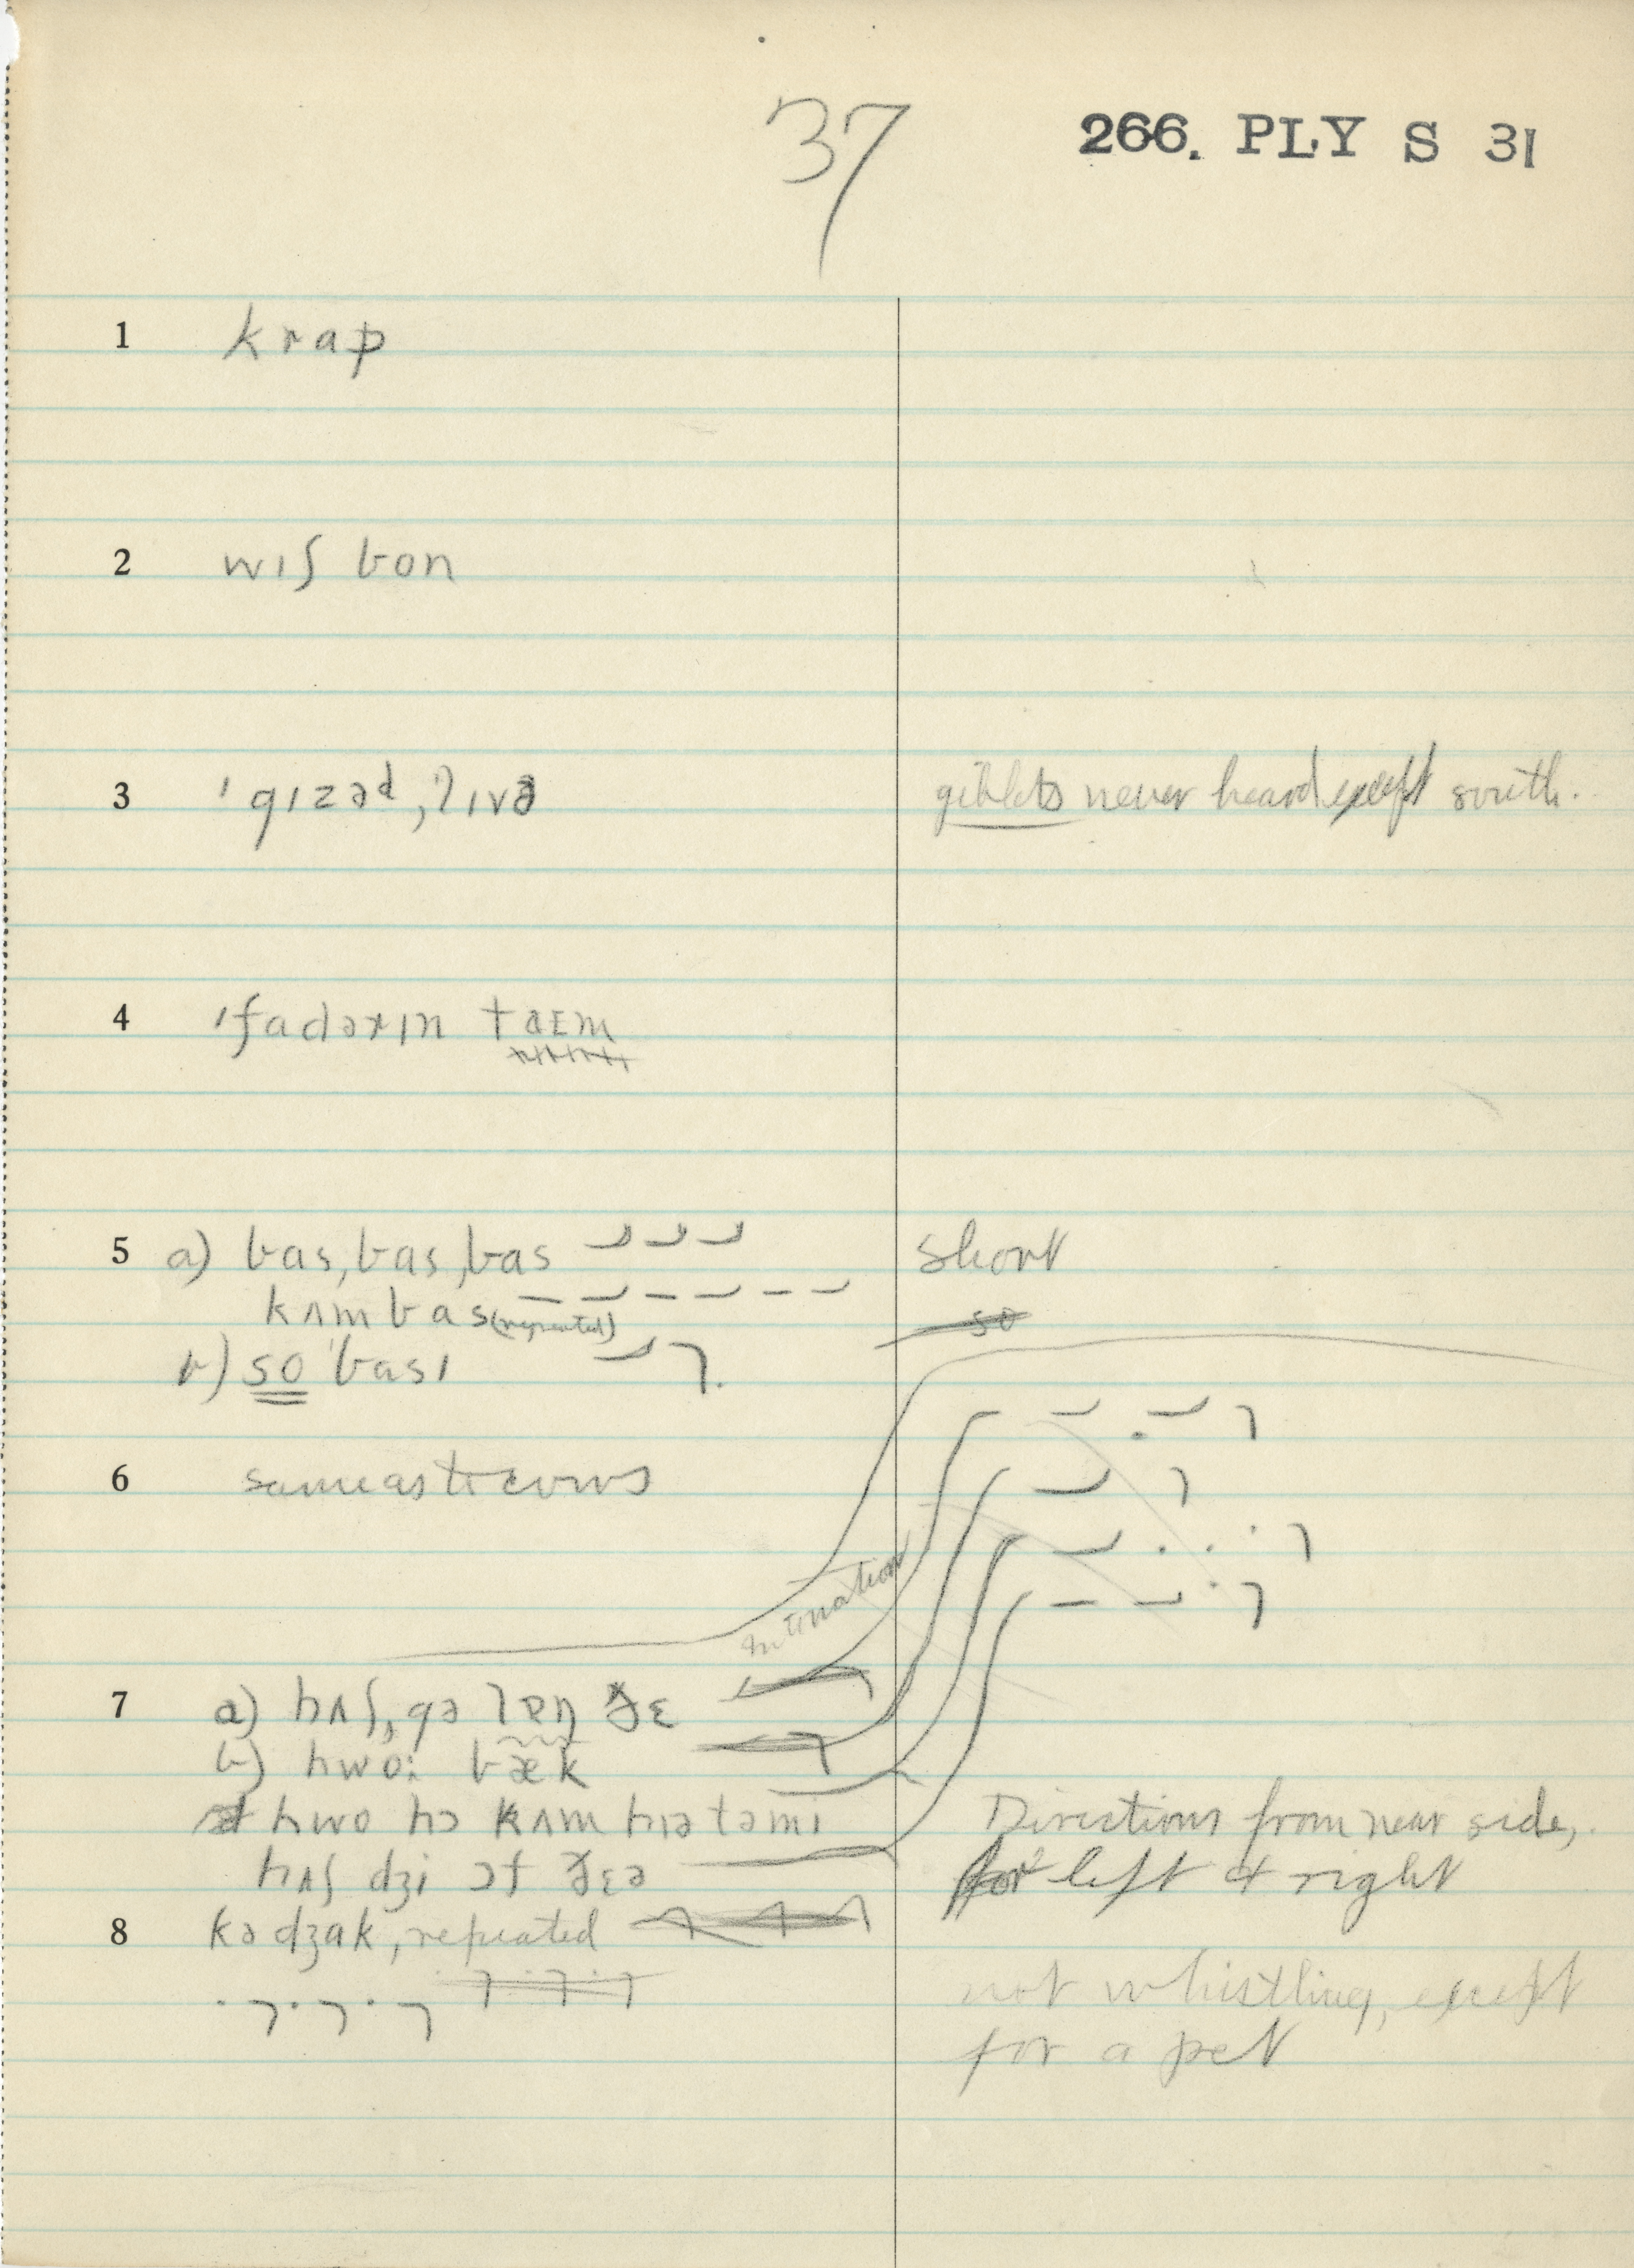 37
266. PLY S 31
1 krap
2 wɪʃ bon
3 'gɪzəd, lɪvə
giblets never heard except south.
4 'fadərɪn taɛm
5 a) bas, bas, bas
short
kʌm bas (repeated)
so
b) so 'bası
6 same as to cows
Intonation
7 a) hʌʃ, gə lɐŋ ðɛ
b) hwo: bæk
hwo hɔ kʌm hɪə təmɪ
Directions from near side,
hʌʃ dʒi ɔf ðɛə
for left & right
8 kədʒak, repeated
not whistling, except
for a pet